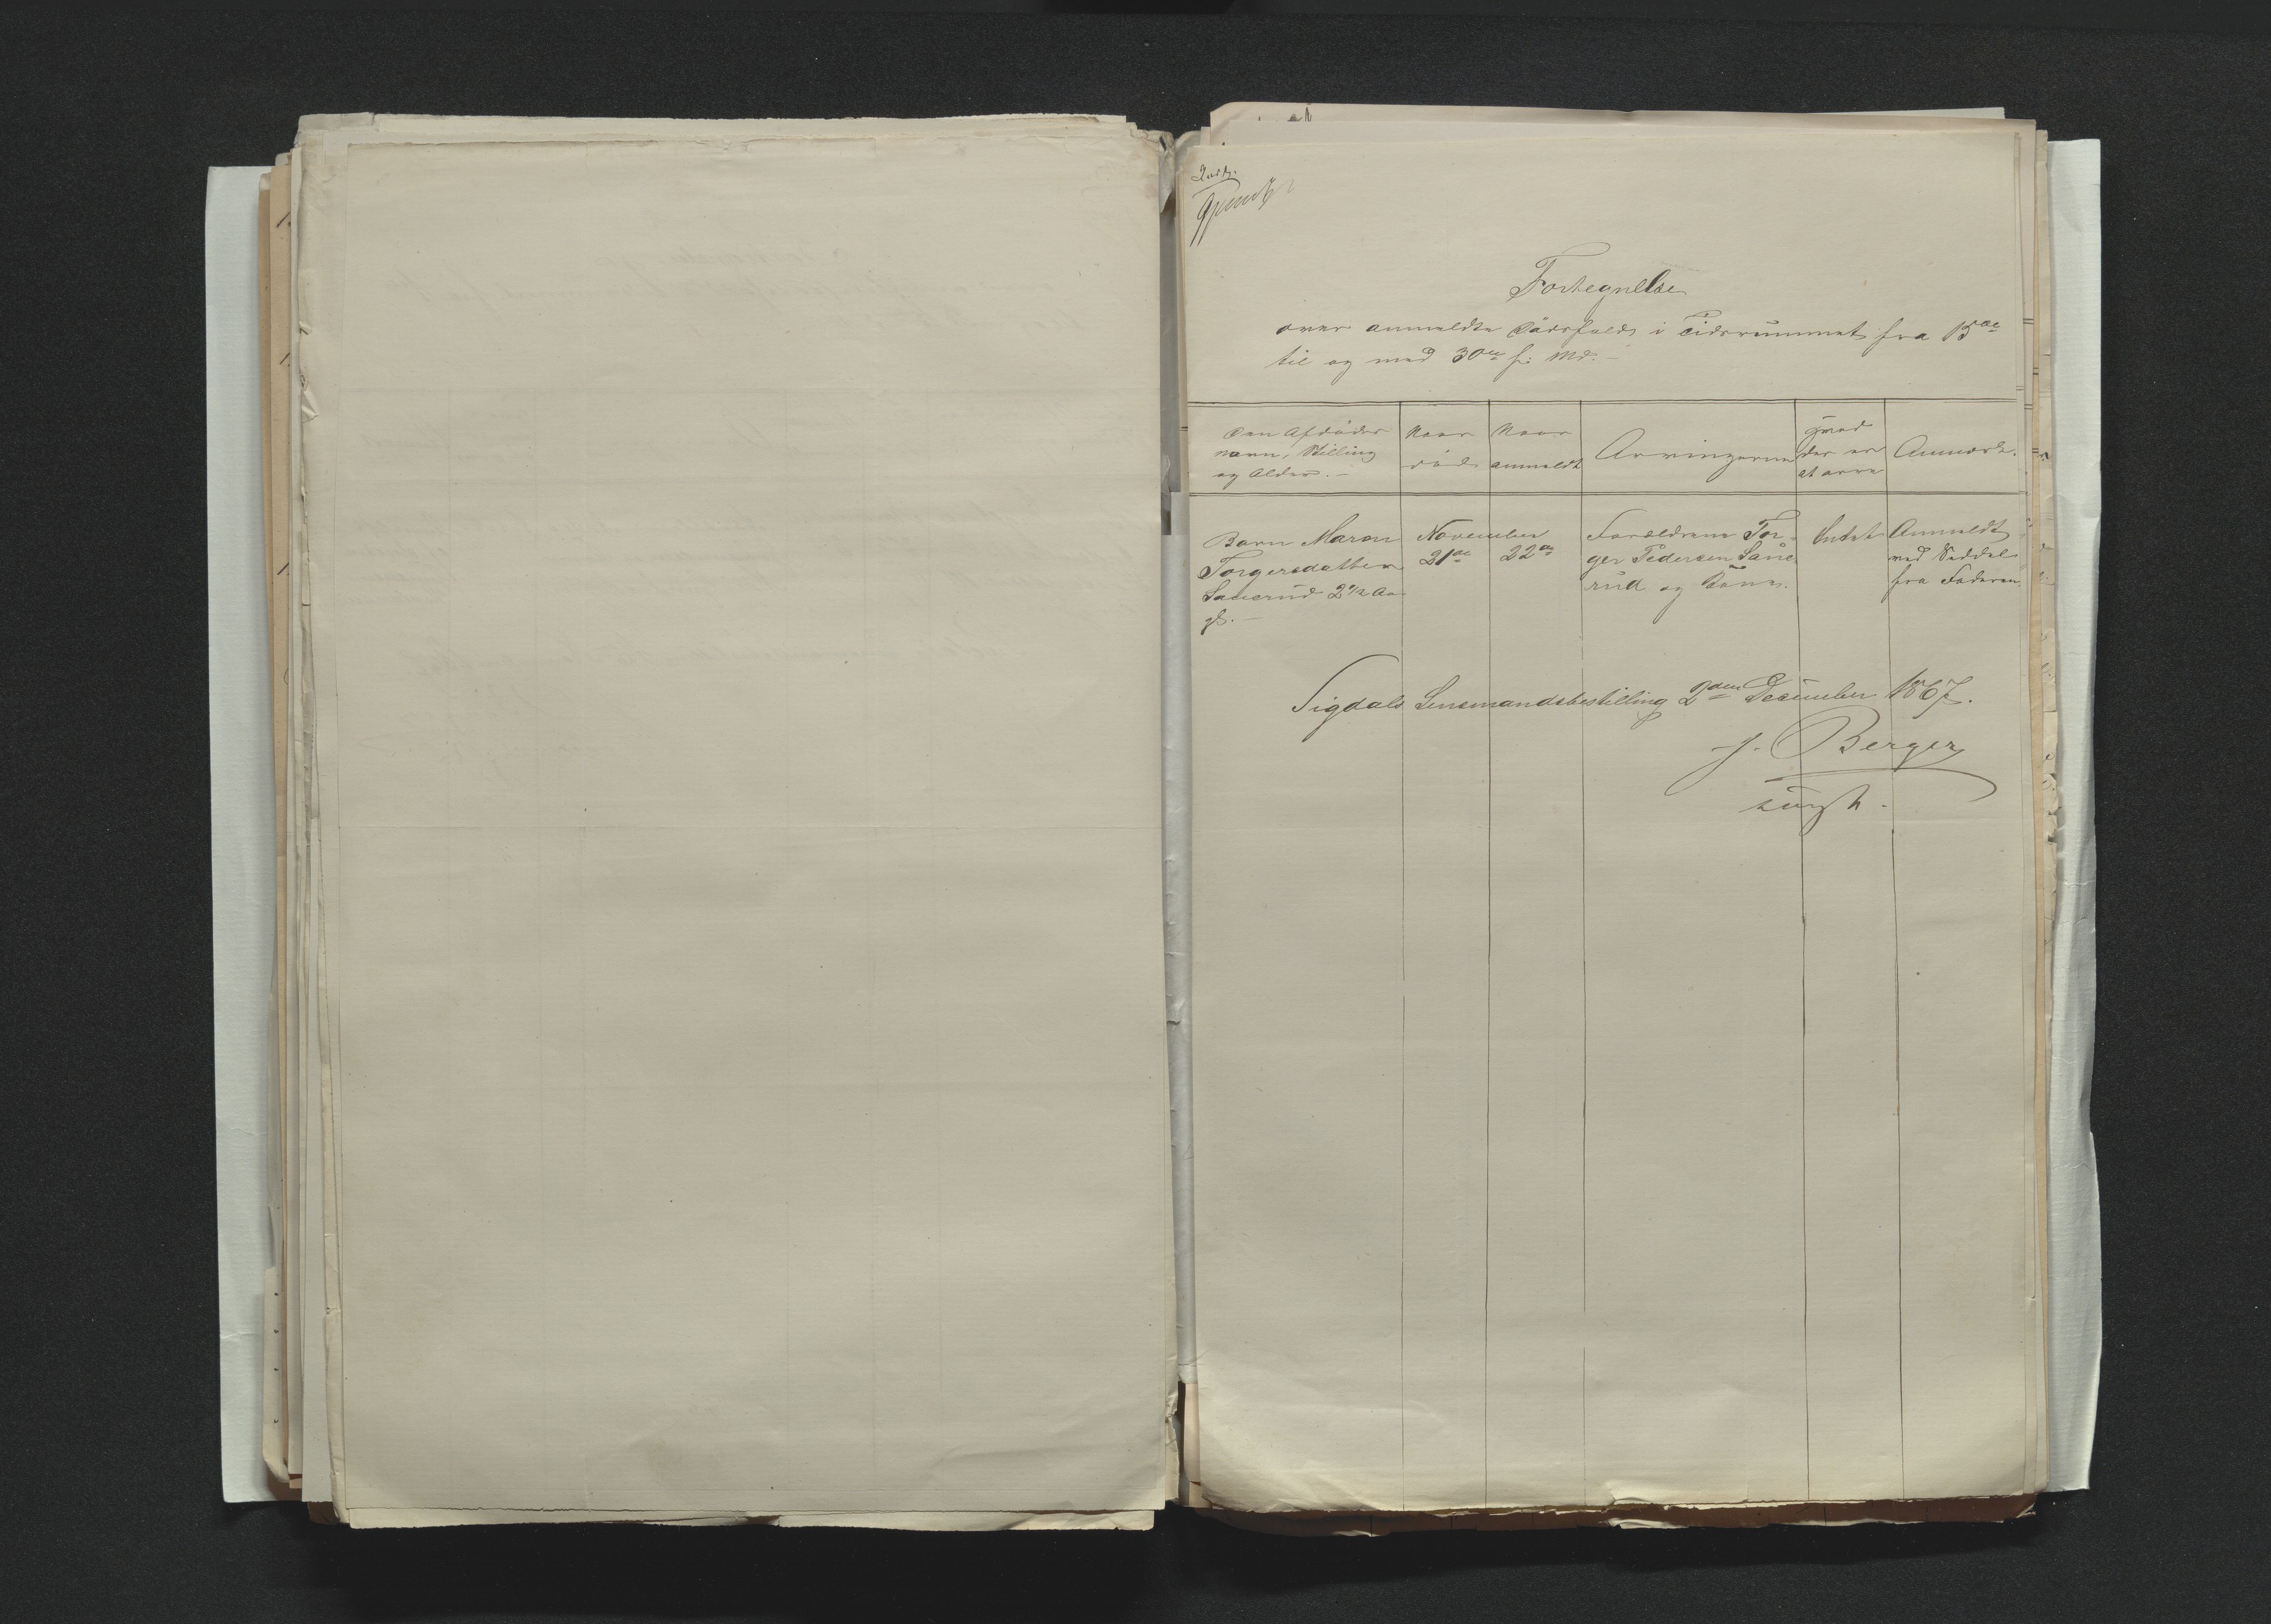 Fortegnelse
over anmeldte Dödsfald i Tidsrummet fra 15de
til og med 30te f. Md. -
Den Afdödes
Navn, Stilling
og Alder. -
Naar
död
Naar
anmeldt
Arvingerne
Hvad
der er
at arve
Anmærk.
Barn Maren
Torgersdatter
Sauerud 2 1/2 Aar
gl. -
November
21de 22de
Forældrene Tor-
ger Pedersen Saue-
rud og Kone.
Intet
Anmeldt
ved Seddel
fra Faderen
Sigdals Lensmandsbestilling 2den December 1867.
J. Berger